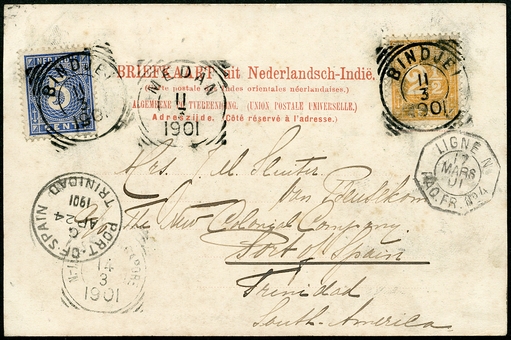 BRIEFKAART uit Nederlandsch-Indië.
(Carte postale des Indes orientales néerlandaises.)
ALGEMEENE POSTVEREENIGING. (UNION POSTALE UNIVERSELLE.)
Adreszijde. (Côté réservé à l'adresse.)
BINDJEI
11
3
1901
MEDAN
11
3
1901
BINDJEI
11
3
1901
CENT
2½
LIGNE N
17
MARS
01
PAQ. FR. Nº4
Mrs. J. M. Sluiter
van
The New Colonial Company.
Port of Spain
Trinidad
South-America
PORT-OF-SPAIN
AP 24
1901
TRINIDAD
14
3
1901